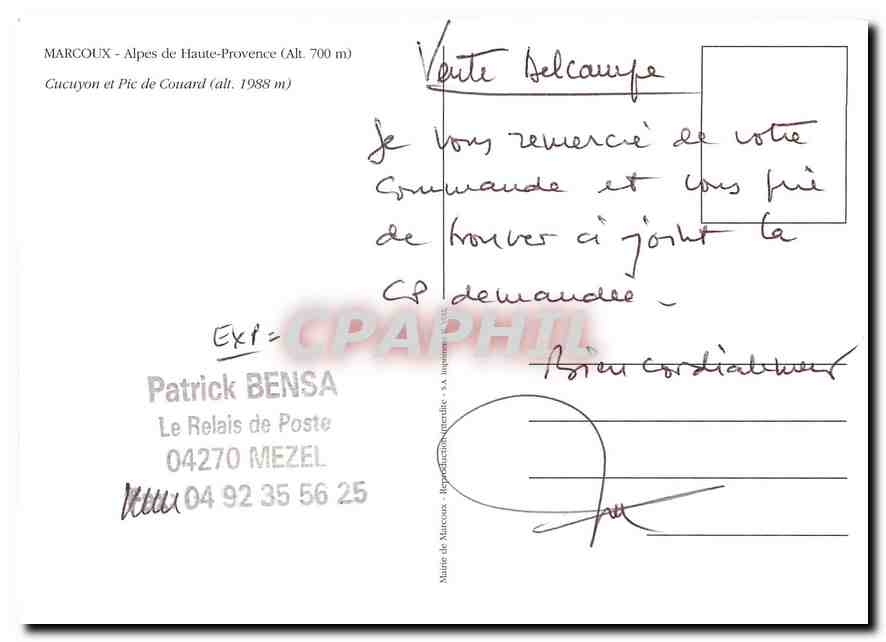 MARCOUX - Alpes de Haute-Provence (Alt. 700 m)
Cucuyon et Pic de Couard (alt. 1988 m)
Vente Delcampe
Je vous remercie de votre
commande et vous prie
de trouver ci joint la
CP demandée -
Bien cordialement
EXP =
Patrick BENSA
Le Relais de Poste
04270 MEZEL
04 92 35 56 25
CPAPHIL
Mairie de Marcoux - Reproduction interdite - S.A. imprimerie